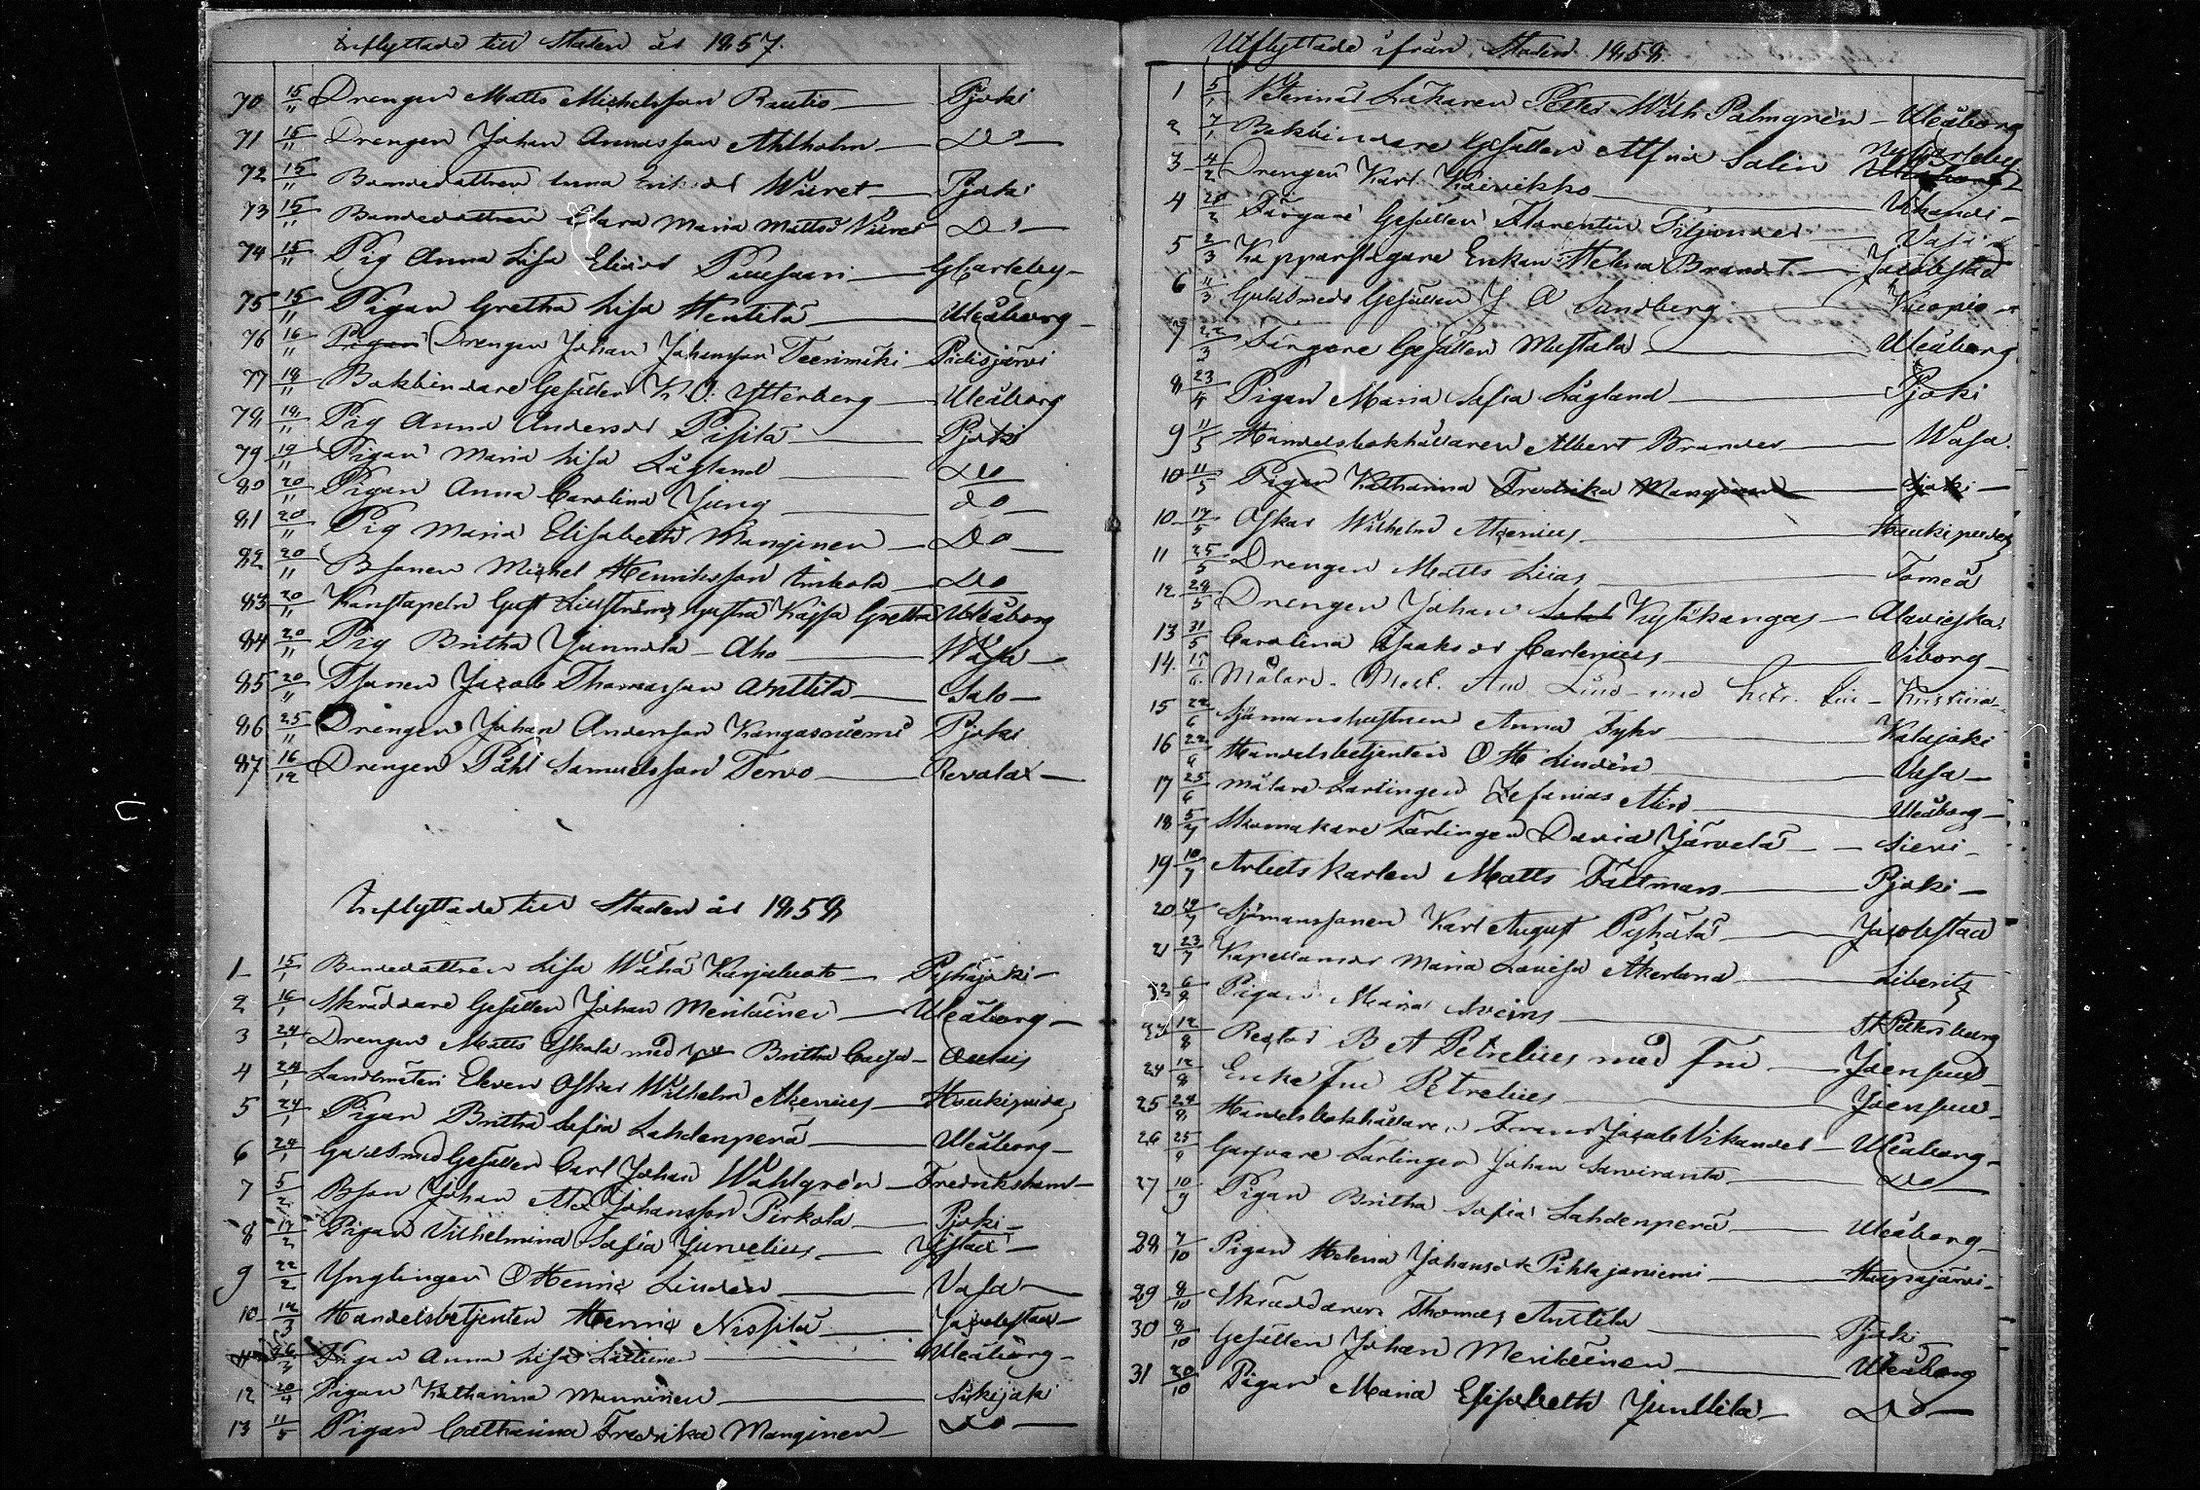 Inflyttade till Staden år 1857.
70 15/11 Drengen Matts Michelsson Rautio Pjoki
71 15/11 Drengen Johan Annasson Ahlholm Do
72 15/11 Bondedottren Anna Wiiret Pjoki
73 15/11 Bondedottren Clara Maria Mattsd Wiiret Do
74 15/11 Pig Anna Lisa Eliasd Puusaari GCarleby
75 15/11 Pigan Gretha Lisa Hentilä Uleåborg
76 16/11 Pigan Drengen Johan Johansson Teerimäki Pidisjärvi
77 18/11 Bokbindare Gesällen K O Ytterberg Uleåborg
78 19/11 Pig Anna Andersdr Pisilä Pjoki
79 19/11 Pigan Maria Lisa Lågland Do
80 20/11 Pigan Anna Carolina Ljung do
81 20/11 Pig Maria Elisabeth Manginen Do
82 20/11 Bsonen Michel Henriksson Do
83 20/11 Konstapeln Gust Lillström, hustru Kajsa Gretha Uleåborg
84 20/11 Pig Britha Junnola Aho Wasa
85 20/11 Tsonen Jacob Thomasson Anttila Salo
86 25/11 Drengen Johan Andersson Kangasniemi Pjoki
87 16/12 Drengen Påhl Samuelsson Tervo Revolax
Inflyttade till Staden år 1858
1 15/1 Bondedottren Lisa Wähä Karjaluoto Pyhäjoki
2 16/1 Skräddare Gesällen Johan Meriläinen Uleåborg
3 24/1 Drengen Matts Eskola med Britha Cajsa Oulais
4 24/1 Landtmäteri Eleven Oskar Wilhelm Alcenius Haukipudas
5 24/1 Pigan Britha Sofia Lahdenperä Uleåborg
6 24/1 Guldsmed Gesällen Carl Johan Wahlgrén Fredrikshamn
7 5/2 Bson Johan Alex Johansson Pirkola Pjoki
8 17/2 Pigan Vilhelmina Sofia Junnelius Jstad
9 22/2 Ynglingen O Henric Linden Vasa
10 12/3 Handelsbetjenten Henric Nissilä Jacobstad
11 26/3 Pigan Anna Lisa Uleåborg
12 20/4 Pigan Katharina Manninen Siikijoki
13 11/5 Pigan Catharina Fredrika Manginen Do
Utflyttade ifrån Staden 1858.
1 5/1 Veterinär Läkaren Petter Wilh Palmgrén Uleåborg
2 7/1 Bokbindare Gesällen Alfrid Salin Nykarleby
3 4/2 Drengen Karl Koivikko
4 20/2 Färgare Gesällen Florentin Siljander Vasa
5 2/3 Kopparslagare Enkan Helena Brandt Jacobstad
6 11/3 Guldsmeds Gesällen J A Sundberg Kuopio
7 22/3 Färgare Gesällen Mustala Uleåborg
8 23/4 Pigan Maria Sofia Lågland Pjoki
9 11/5 Handelsbokhållaren Albert Brander Wasa
10 11/5 Pigan Katharina Fredrika Manginen Sjoki
10 17/5 Oskar Wilhelm Alcenius Haukipudas
11 25/5 Drengen Matts Liias Torneå
12 29/5 Drengen Johan Kystökangas Alavieska
13 31/5 Carolina Isaksdr Carlenius Viborg
14 15/6 Målare Mest. And Lind med hstr.
15 22/6 Sjömanshustrun Anna Fyhr Kalajoki
16 22/6 Handelsbetjenten O H Lindén Vasa
17 25/6 Målare Lärlingen Zefanias Alin Uleåborg
18 5/7 Skomakare Lärlingen David Järvelä Sievi
19 10/7 Arbets karlen Matts Fältmars Pjoki
20 19/7 Sjömanssonen Karl August Pyhälä Jacobstad
21 23/7 Kapellansdr Maria Lovisa Åkerlund Liberitz
22 6/8 Pigan Maria St Petersburg
23 12/8 Rector B A Petrelius med Fru Joensuu
24 12/8 Enke Fru Petrelius Joensuu
25 24/8 Handelsbokhållaren Frans Jacob Vikandel Uleåborg
26 25/9 Garfvare Lärlingen Johan Sarviranta Do
27 10/9 Pigan Britha Sofia Lahdenperä Uleåborg
28 7/10 Pigan Helena Johansdr Pihlajaniemi Haapajärvi
29 8/10 Skräddaren Thomas Anttila Pjoki
30 8/10 Gesällen Johan Meriläinen Uleåborg
31 20/10 Pigan Maria Elisabeth Junttila Do